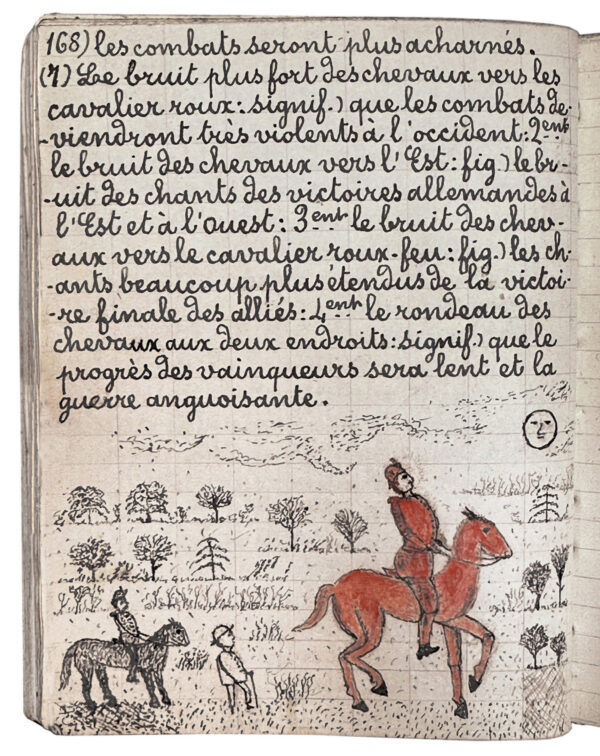 168) les combats seront plus acharnés.
(7) Le bruit plus fort des chevaux vers les
cavalier roux: signif.) que les combats de-
-viendront très violents à l'occident: 2ent
le bruit des chevaux vers l'Est: fig.) le br-
-uit des chants des victoires allemandes à
l'Est et à l'Ouest: 3ent le bruit des chev-
aux vers le cavalier roux-feu: fig.) les ch-
-ants beaucoup plus étendus de la victoi-
-re finale des alliés: 4ent le rondeau des
chevaux aux deux endroits: signif.) que le
progrès des vainqueurs sera lent et la
guerre anguoisante.